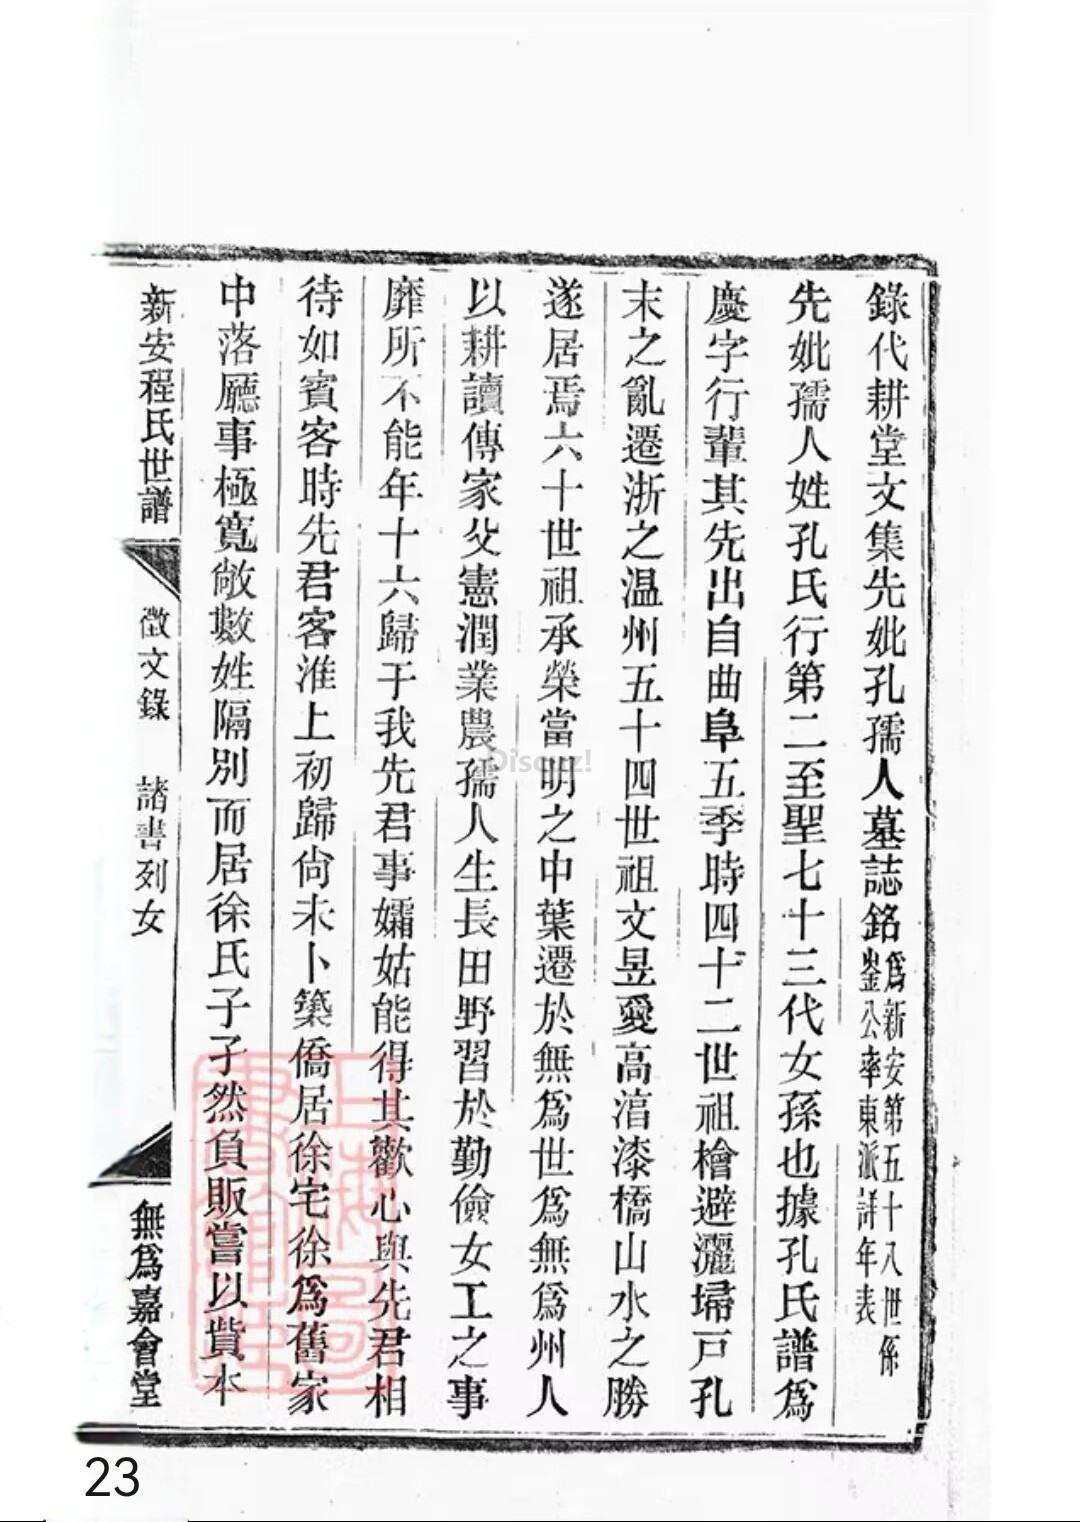 錄代耕堂文集先妣孔孺人墓誌銘為新安第五十八世係
鉴公率東派詳年表
先妣孺人姓孔氏行第二至聖七十三代女孫也據孔氏譜爲
慶字行輩其先出自曲阜五季時四十二世祖檜避灑埽戸孔
末之亂遷浙之温州五十四世祖文昱愛高湻漆橋山水之勝
遂居焉六十世祖承榮當明之中葉遷於無爲世爲無爲州人
以耕讀傳家父憲潤業農孺人生長田野習於勤儉女工之事
靡所不能年十六歸于我先君事孀姑能得其歡心與先君相
待如賓客時先君客淮上初歸尙未卜築僑居徐宅徐爲舊家
中落廳事極寬敞數姓隔別而居徐氏子孑然負販嘗以貲本
新安程氏世譜
徵文錄 諸書列女
無爲嘉會堂
Discuz!
23